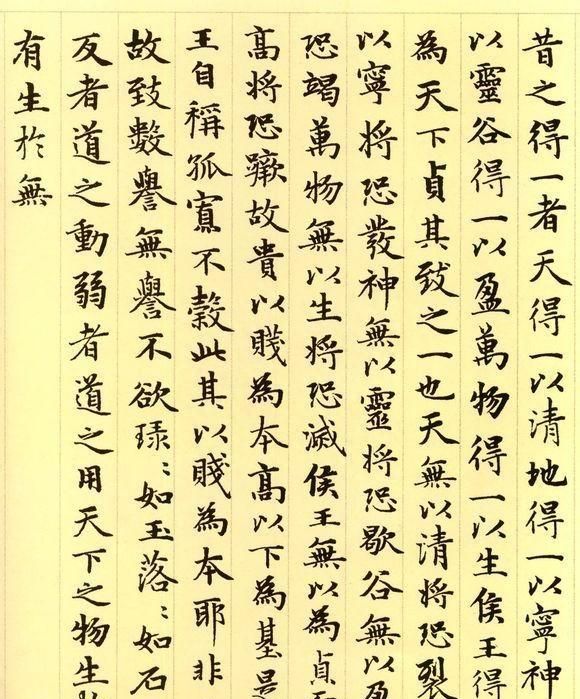 昔之得一者天得一以清地得一以寧神
以靈谷得一以盈萬物得一以生侯王得
為天下貞其致之一也天無以清將恐裂
以寧將恐發神無以靈將恐歇谷無以盈
恐竭萬物無以生將恐滅侯王無以為貞
高將恐蹶故貴以賤為本高以下為基是
王自稱孤寡不穀此其以賤為本耶非
故致數譽無譽不欲琭:如玉落:如石
反者道之動弱者道之用天下之物生
有生於無